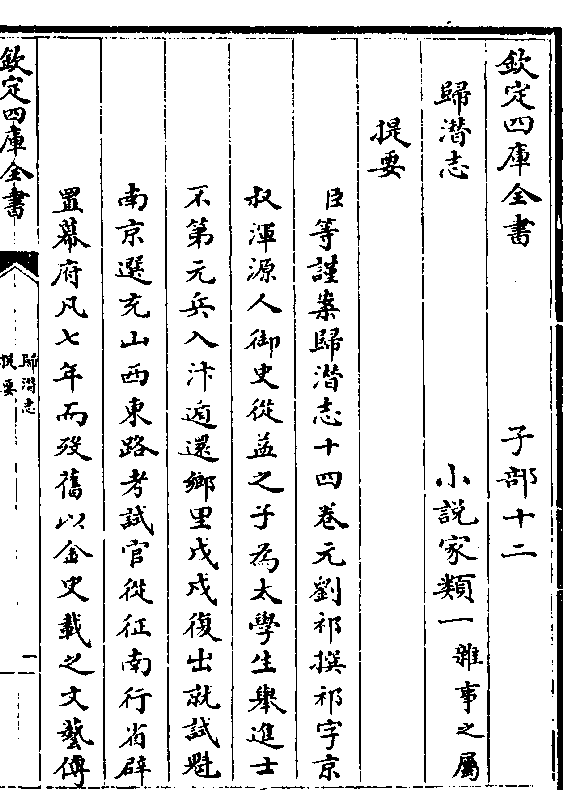 欽定四庫全書 子部十二
歸潛志 小說家類一 雜事之屬
提要
臣等謹案歸潛志十四卷元劉祁撰祁字京
叔渾源人御史從益之子為太學生舉進士
不第元兵入汴遁還鄉里戊戌復出就試魁
南京選充山西東路考試官從征南行省辟
置幕府凡七年而歿舊以金史載之文藝傳
欽定四庫全書
歸潛志
提要
一